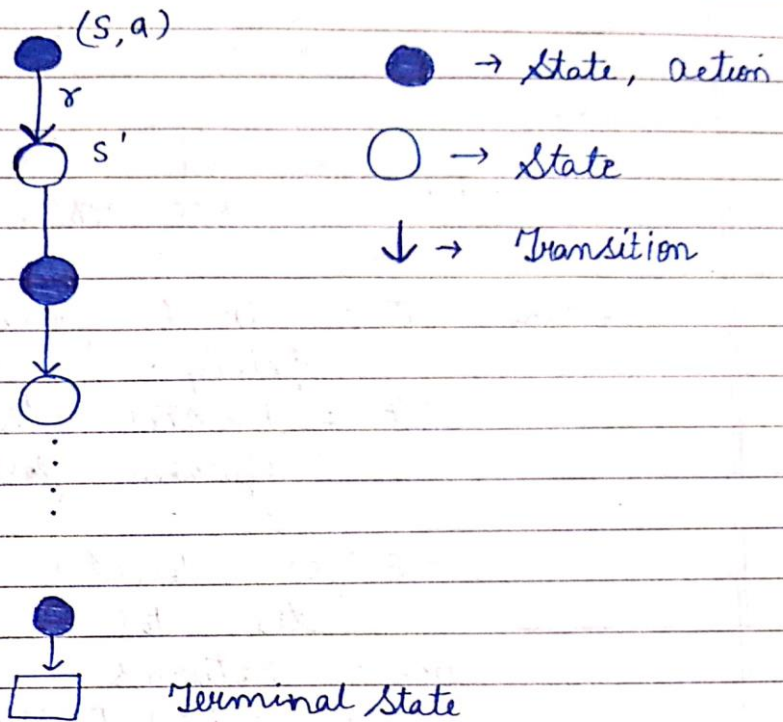 (S,a)
→ State, action
r
S'
→ State
→ Transition
Terminal State